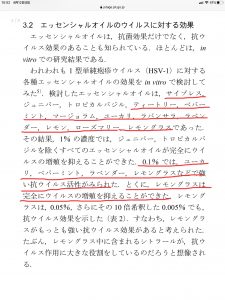 3.2 エッセンシャルオイルのウイルスに対する効果
エッセンシャルオイルは、抗菌効果だけでなく、抗ウ
イルス効果のあることも知られている。ほとんどは、in
vitroでの研究結果である。
われわれも1型単純疱疹ウイルス(HSV-1)に対する
各種エッセンシャルオイルの効果をin vitroで検討して
みた5)。検討したエッセンシャルオイルは、サイプレス、
ジュニパー、トロピカルバジル、ティートリー、ペパー
ミント、マージョラム、ユーカリ、ラバンサラ、ラベン
ダー、レモン、ローズマリー、レモングラスであった。
その結果、1%の濃度では、ジュニパー、トロピカルバ
ジルを除くすべてのエッセンシャルオイルが完全にウイ
ルスの増殖を抑えることができた。0.1%では、ユーカ
リ、ペパーミント、ラベンダー、レモングラスなどで強
い抗ウイルス活性がみられた。とくに、レモングラスは
完全にウイルスの増殖を抑えることができた。レモング
ラスは、0.05%、さらにその10倍希釈した0.005%でも、
抗ウイルス効果を示した（表2）。すなわち、レモングラ
スがもっとも強い抗ウイルス効果があると考えられた。
たぶん、レモングラス中に含まれるシトラールが、抗ウ
イルス作用に大きな役割をしているのだろうと想像され
る。